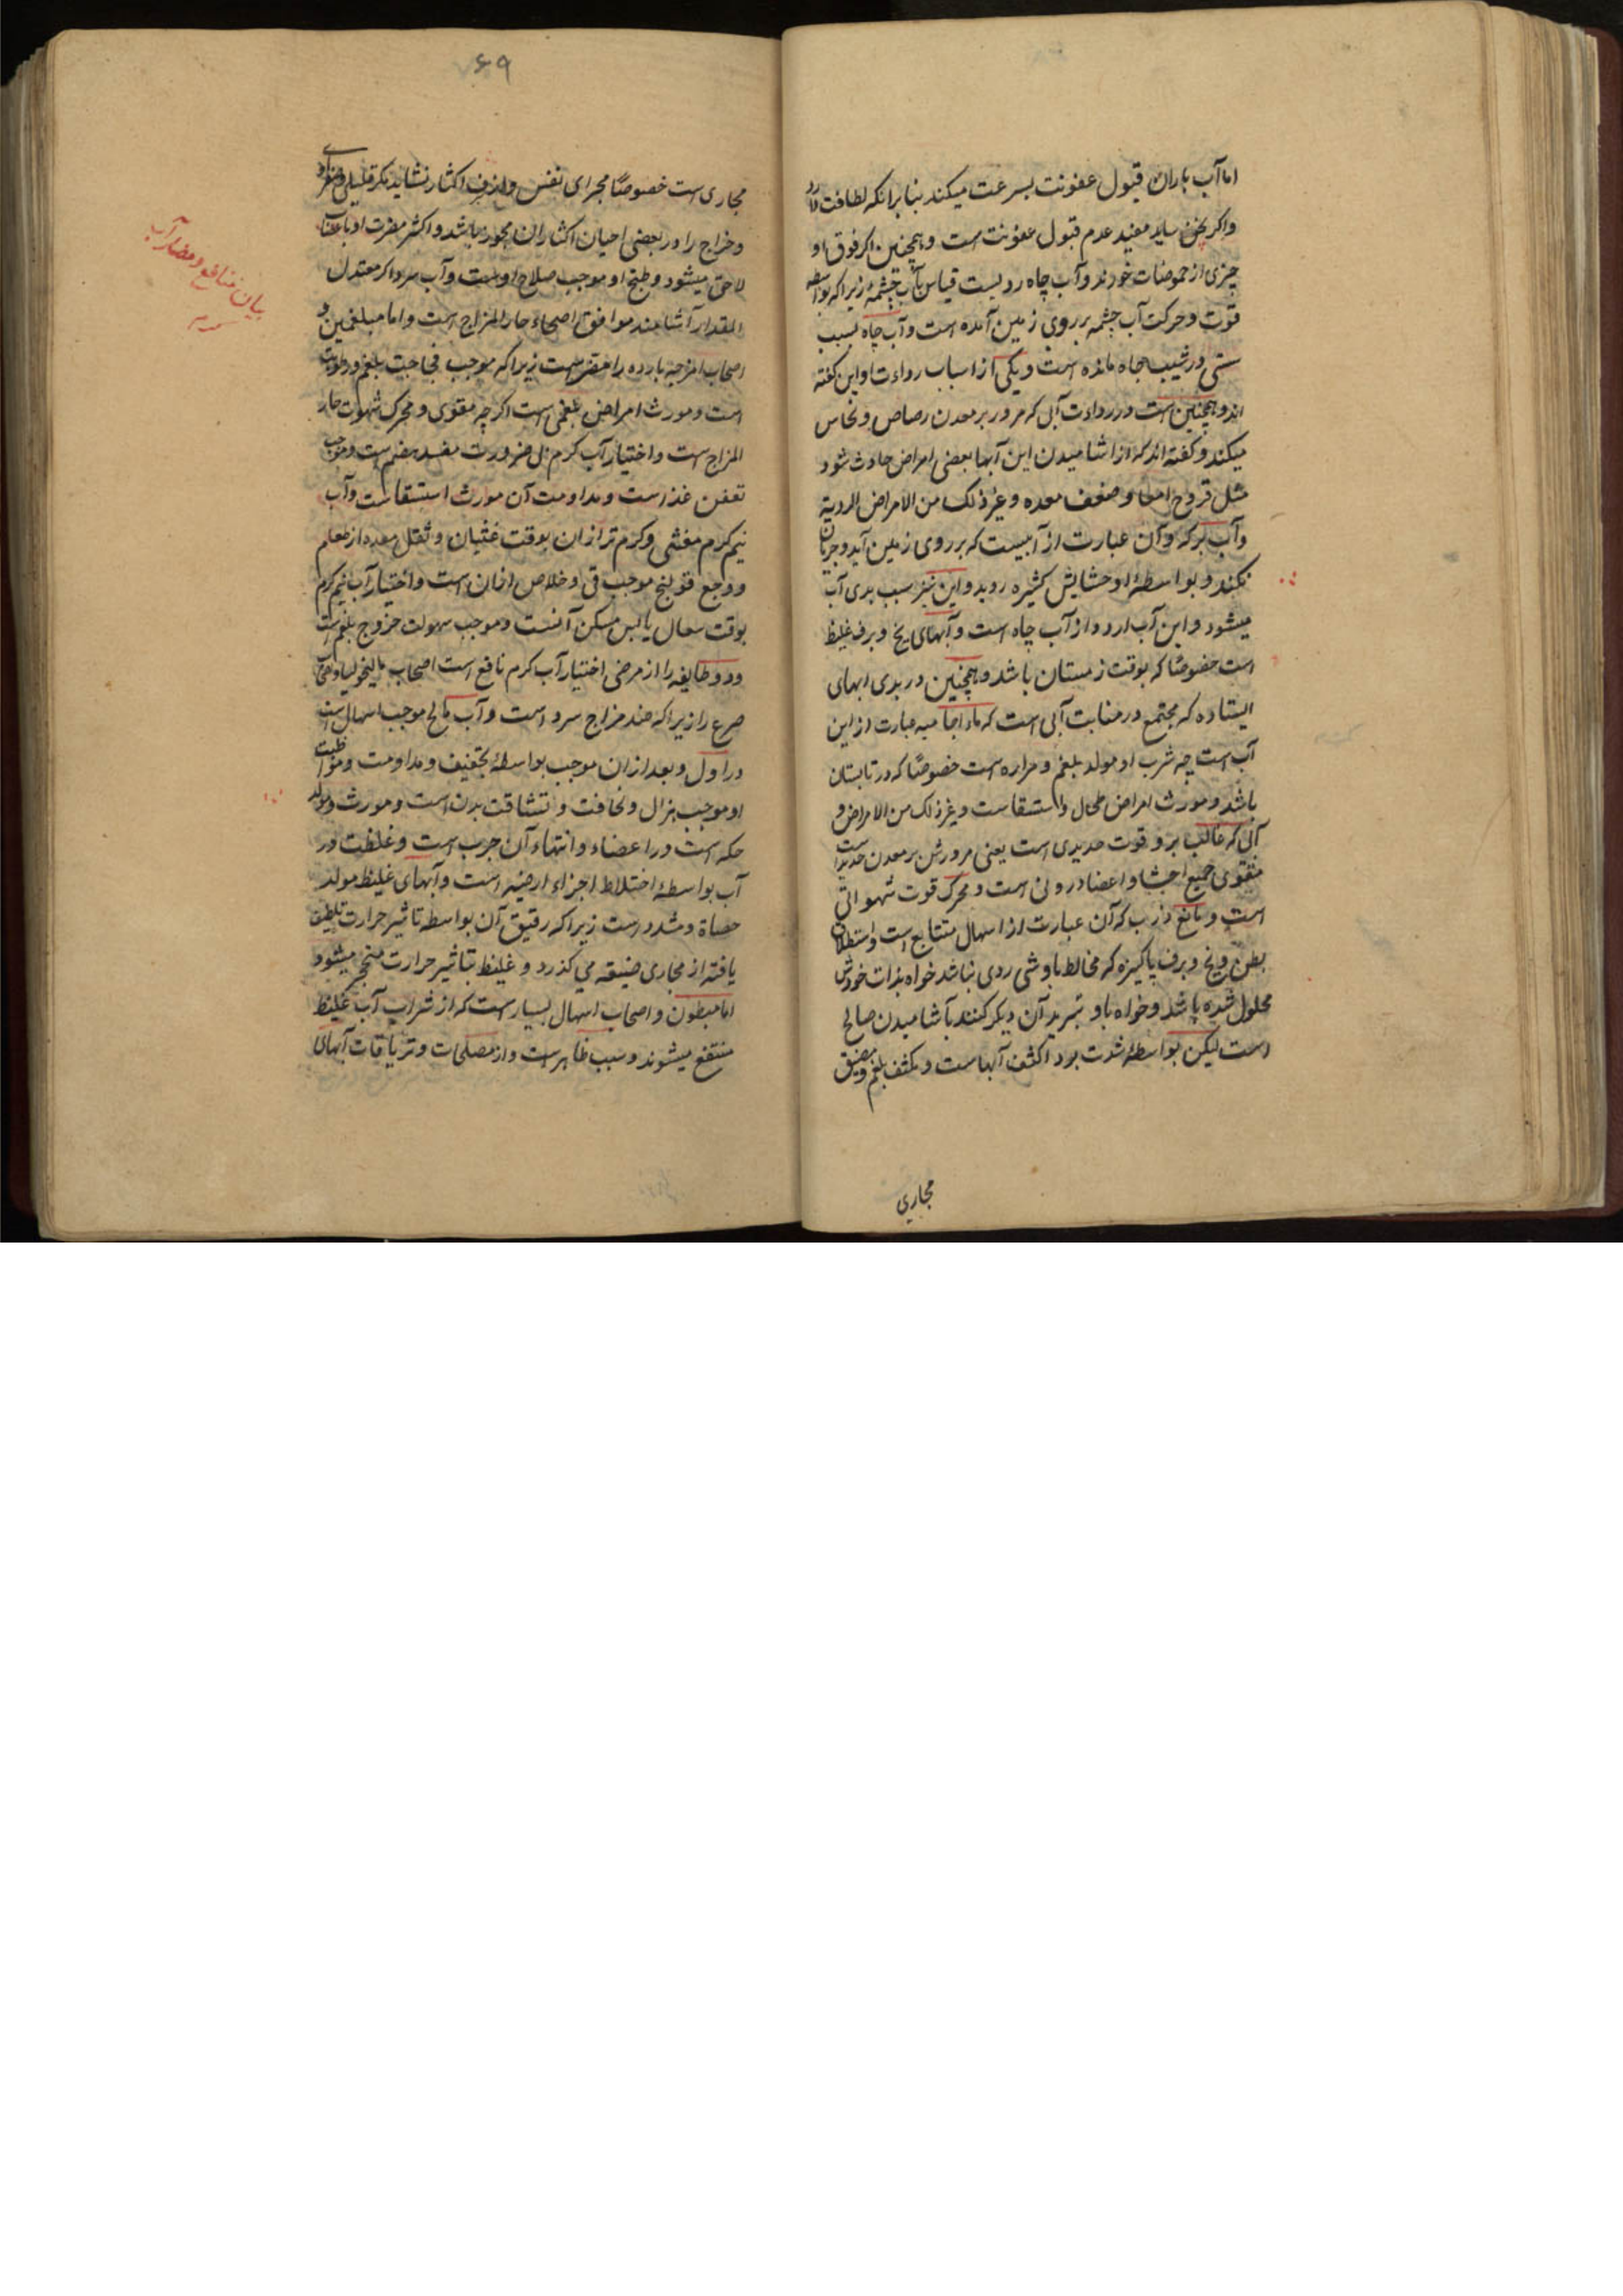 اما آب باران قبول عفونت بسرعت میکند بنا برانکه لطافت دارد
واکر بخن سیلا مفید عدم قبول عفونت است و همچنین اکر فوق او
چیزی از حموضات خورند وآب چاه ردیست قیاس بآب چشمه زیرا که بواسطه
قوت وحرکت آب چشمه بر روی زمین آمده است وآب چاه بسبب
سستی در شیب چاه مانده است ویکی از اسباب رداءت او این کفته
اند وهمچنین است در رداءت آبی که مرور بر معدن رصاص ونحاس
میکند وکفته اند که از اشامیدن این آبها بعضی امراض حادث شود
مثل قروح امعا وضعف معده وغیر ذلک من الامراض الردیة
وآب برکه وآن عبارت از آبیست که بر روی زمین آید وجریان
نکند وبواسطۀ او حشایش کثیره روید واین نیز سبب بدی آب
میشود واین آب اردء از آب چاه است وآبهای یخ وبرف غلیظ
است خصوصًا که بوقت زمستان باشد وهمچنین در بدی ابهای
ایستاده که مجتمع در منابت آبی است که ماء اجامیه عبارت از این
آب است چه شرب او مولد بلغم ومراره است خصوصًا که در تابستان
باشد ومورث امراض طحال واستسقاست وغیر ذلک من الامراض و
آبی که غالب برو قوت حدیدی است یعنی مرورش بر معدن حدید است
مقوی جمیع احشا واعضا درونی است ومحرک قوت شهوانی
است ومانع ذرب که آن عبارت از اسهال متتابع است واستطلاق
بطن ویخ وبرف پاکیزه که مخالط باو شی ردی نباشد خواه بذات خودش
محلول شده باشد وخواه باو تبرید آن دیکر کنند بآشامیدن صالح
است لیکن بواسطۀ شدت برد اکثف آبهاست ومکثف بلغم ومضیق
مجاری
۶۹
مجاری ست خصوصًا مجرای نفس وازبن اکثار نشاید مکر قلیلی
وخراج را در بعضی احیان اکثار ان مجوز باشد واکثر مضرت او باعصاب
لاحق میشود وطبخ او موجب صلاح اوست وآب سرد اکر معتدل
المقدار آشامند موافق اصحاء حار المزاج است واما مبلغمین و
اصحاب امزجۀ بارده را مضر ست زیرا که موجب فجاجت بلغم ورطوبت
است ومورث امراض بلغمی است اکرچه مقوی ومحرک شهوت حار
المزاج ست واختیار آب کرم بل ضرورت مفسد هضم ست وموجب
تعفن غذاست ومداومت آن مورث استسقاست وآب
نیم کرم مغثی وکرم تر از ان بوقت غثیان وثقل معده از طعام
ووجع قولنج موجب قی وخلاص ازان است واختیار آب نیم کرم
بوقت سعال یابس مسکن آنست وموجب سهولت خروج بلغم ست
ودو طایفه را از مرضی اختیار آب کرم نافع است اصحاب مالیخولیا واصحاب
صرع را زیرا که ضد مزاج سرد است وآب مالح موجب اسهال است
در اول وبعد ازان موجب بواسطۀ تجفیف ومداومت ومواظبت
او موجب هزال ونحافت وانتشاقت بدن است ومورث ومولد
حکه است در اعضاء وانتهاء آن جرب است وغلظت در
آب بواسطۀ اختلاط اجزاء ارضیه است وآبهای غلیظ مولد
حصاة وسدد رست زیرا که رقیق آن بواسطه تاثیر حرارت تلطیف
یافته از مجاری ضیقه می کذرد وغلیظ بتاثیر حرارت متحجر میشود
اما مبطون واصحاب اسهال بسیار ست که از شراب آب غلیظ
منتفع میشوند وسبب ظاهر ست واز مصلحات وتریاقات آبهای
بیان منافع ومضار آب
کرم